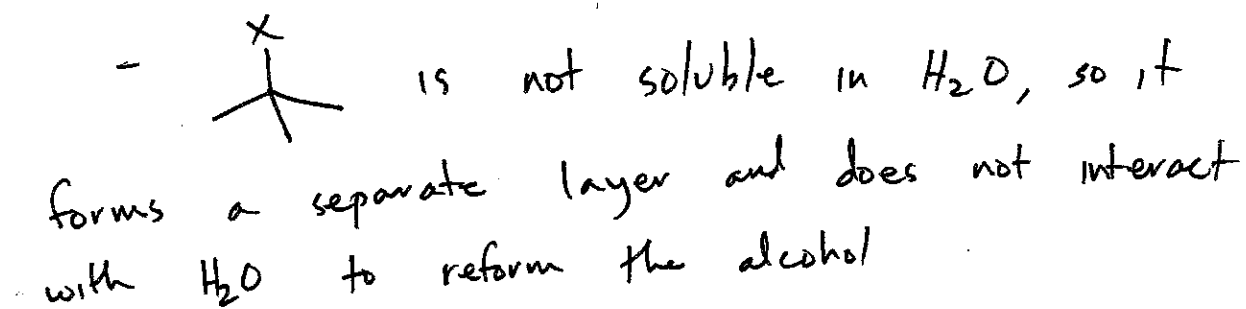 X
- is not soluble in H₂O, so it
forms a separate layer and does not interact
with H₂O to reform the alcohol